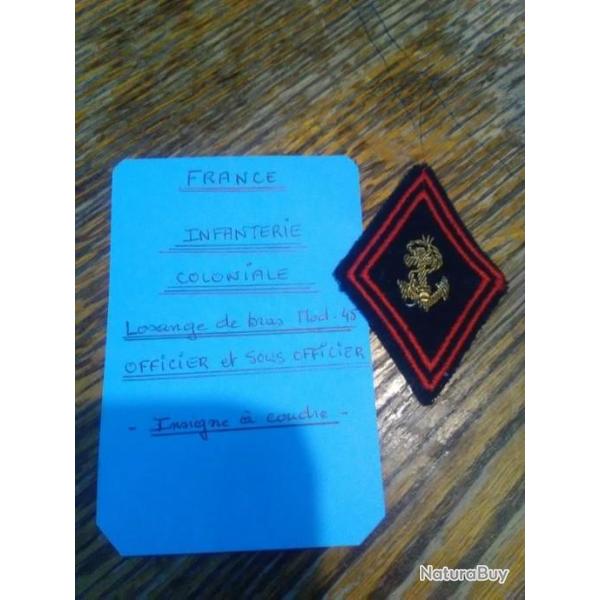 FRANCE
INFANTERIE
COLONIALE
Losange de bras Mod. 45
OFFICIER et SOUS OFFICIER
- Insigne à coudre -
NaturaBuy